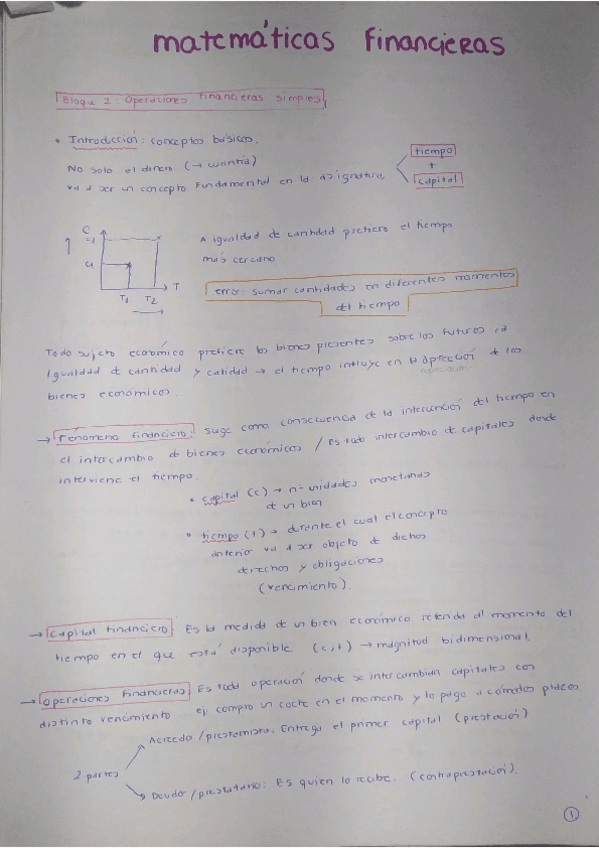 matemáticas financieras
Bloque 1: Operaciones financieras simples
• Introducción: conceptos básicos.
No solo el dinero (→ cuantía) tiempo
va a ser un concepto fundamental en la asignatura +
capital
C
T
T1 T2
A igualdad de cantidad prefiero el tiempo
más cercano
error: sumar cantidades en diferentes momentos
del tiempo
Todo sujeto económico prefiere los bienes presentes sobre los futuros a
igualdad de cantidad y calidad → el tiempo influye en la apreciación de los
bienes económicos.
→ Fenómeno financiero: Surge como consecuencia de la intervención del tiempo en
el intercambio de bienes económicos / Es todo intercambio de capitales donde
interviene el tiempo.
• capital (c) → nº unidades monetarias
de un bien
• tiempo (t) → durante el cual el concepto
anterior va a ser objeto de dichos
derechos y obligaciones
(vencimiento).
→ Capital financiero: Es la medida de un bien económico referida al momento del
tiempo en el que está disponible (c,t) → magnitud bidimensional.
→ Operaciones financieras: Es toda operación donde se intercambian capitales con
distinto vencimiento ej: compro un coche en el momento y lo pago a cómodos plazos
Acreedor/prestamista: Entrega el primer capital (prestación)
2 partes
Deudor/prestatario: Es quien lo recibe. (contraprestación).
1